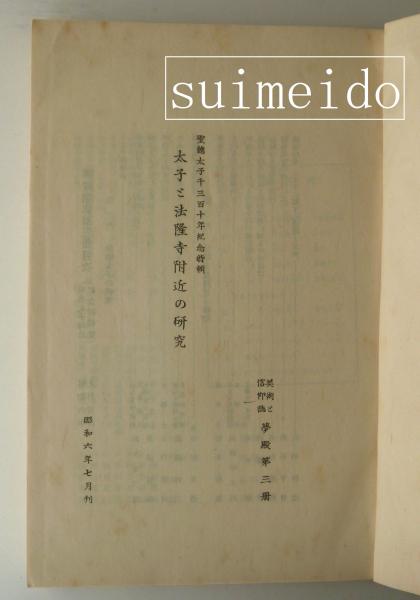 suimeido
美術と
信仰誌 夢殿第三册
聖德太子千三百十年紀念特輯
太子と法隆寺附近の研究
昭和六年七月刊